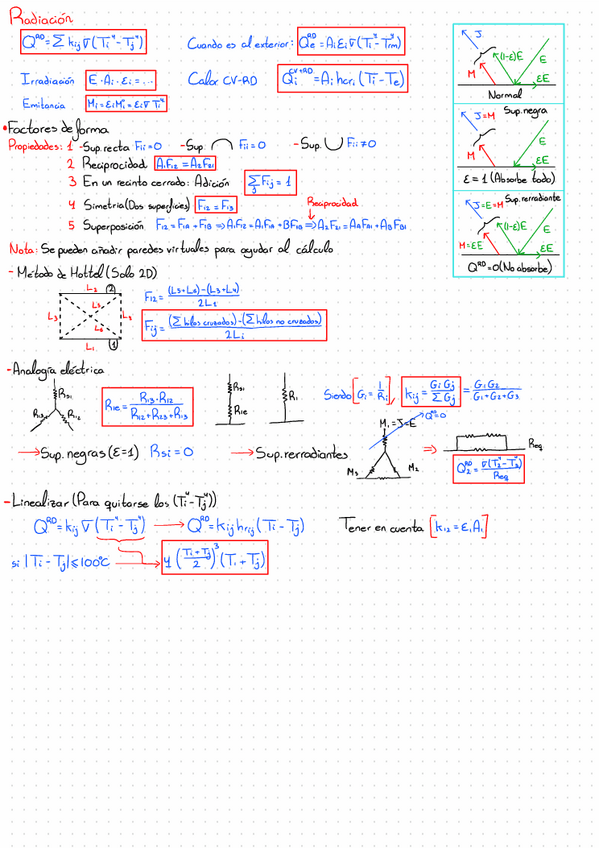 Radiación
Q^RD = Σ kij ∇ (Ti⁴ - Tj⁴) Cuando es al exterior: Qe^RD = Ai εi ∇ (Ti⁴ - Trm⁴)
Irradiación E · Ai · εi = ... Calor CV-RD Qi^CV+RD = Ai hcri (Ti - Te)
Emitancia Mi = εi Mi° = εi ∇ Ti⁴
J (1-ε)E E
M εE
Normal
J=M Sup. negra
E
M εE
ε = 1 (Absorbe todo)
J=E=M Sup. rerradiante
(1-ε)E E
M=εE εE
Q^RD = 0 (No absorbe)
• Factores de forma
Propiedades: 1 - Sup. recta Fii = 0 - Sup. ⌒ Fii = 0 - Sup. ∪ Fii ≠ 0
2 Reciprocidad A1F12 = A2F21
3 En un recinto cerrado: Adición Σj Fij = 1
4 Simetria (Dos superficies) F12 = F13
Reciprocidad
5 Superposición F12 = F1A + F1B ⇒ A1F12 = A1F1A + BF1B ⇒ A2F21 = AAFA1 + ABFB1
Nota: Se pueden añadir paredes virtuales para ayudar al cálculo
- Metodo de Hottel (Solo 2D)
L2 2
L3 L5 L6 L4
L1 1
F12 = (L5+L6)-(L3+L4) / 2L1
Fij = (Σ hilos cruzados)-(Σ hilos no cruzados) / 2Li
- Analogía eléctrica
RS1 R13 R12
R1e = R13·R12 / R12+R23+R13
RS1 R1e R1
Siendo [Gi = 1/Ri], kij = Gi Gj / ΣGj = G1G2 / G1+G2+G3
→ Sup. negras (ε=1) Rsi = 0 → Sup. rerradiantes
M1=J=E Q^RD=0
M3 M2
⇒ Req
Q2^RD = ∇(T2⁴-T3⁴) / Req
- Linealizar (Para quitarse los (Ti⁴-Tj⁴))
Q^RD = kij ∇ (Ti⁴ - Tj⁴) → Q^RD = kij hrij (Ti - Tj) Tener en cuenta [k12 = ε1A1]
si |Ti - Tj| ≤ 100°C → 4 (Ti+Tj / 2)³ (Ti + Tj)